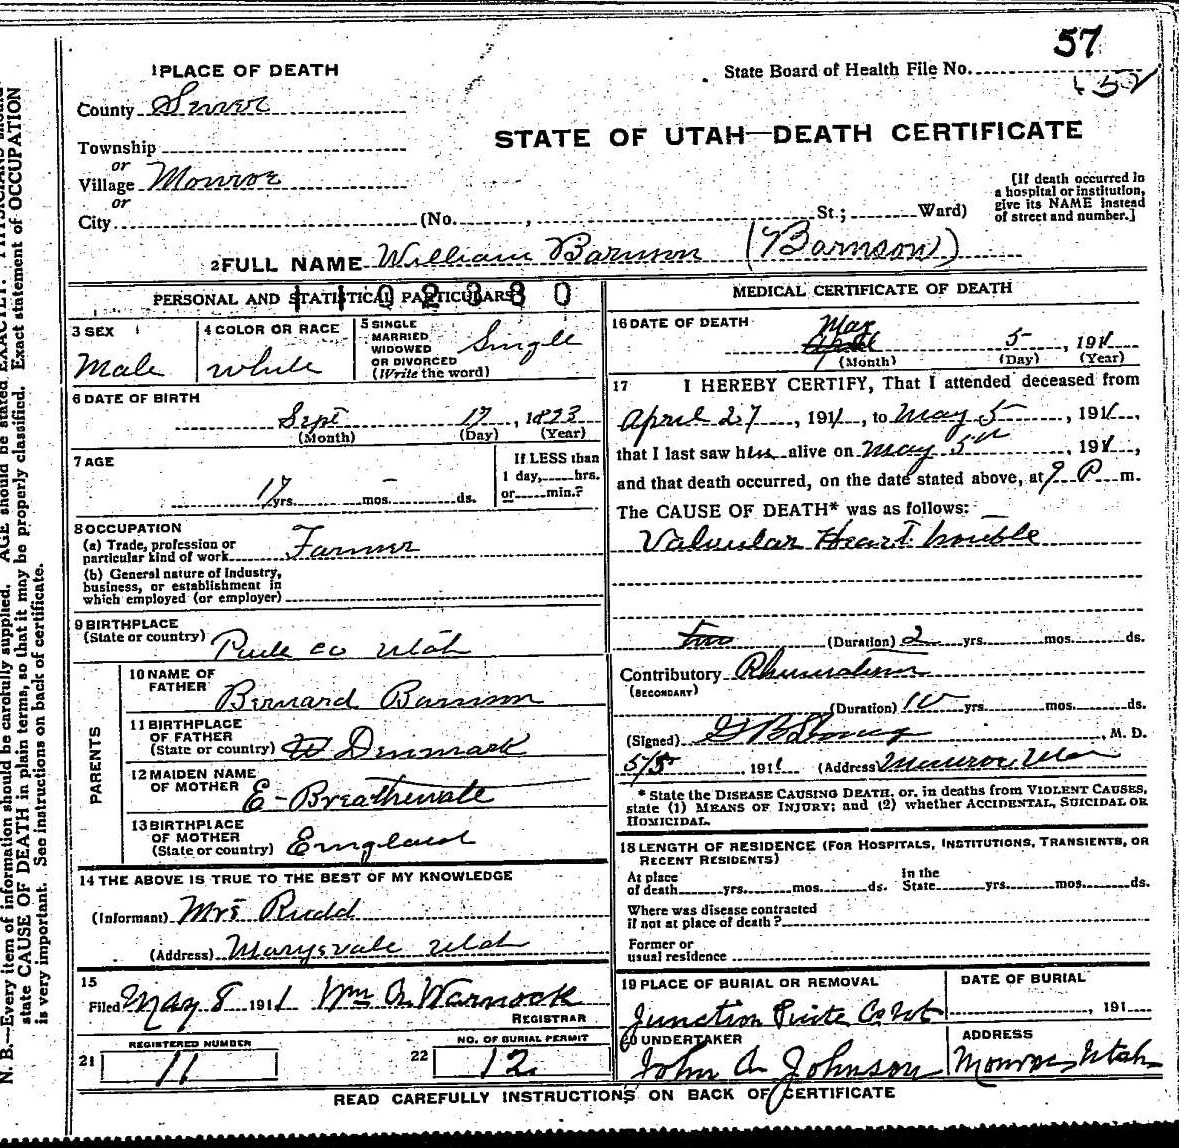 57
State Board of Health File No.
152
1 PLACE OF DEATH
County Sevier
STATE OF UTAH—DEATH CERTIFICATE
Township
or
Village Monroe
or
City (No. , St.; Ward)
[If death occurred in
a hospital or institution,
give its NAME instead
of street and number.]
2 FULL NAME William Barnson (Barnson)
PERSONAL AND STATISTICAL PARTICULARS
1102380
3 SEX
Male
4 COLOR OR RACE
white
5 SINGLE
MARRIED
WIDOWED
OR DIVORCED
(Write the word)
Single
6 DATE OF BIRTH
Sept 17, 1893
(Month) (Day) (Year)
7 AGE
17 yrs. - mos. ds.
If LESS than
1 day, hrs.
or min.?
8 OCCUPATION
(a) Trade, profession or
particular kind of work Farmer
(b) General nature of Industry,
business, or establishment in
which employed (or employer)
9 BIRTHPLACE
(State or country) Piute co Utah
PARENTS
10 NAME OF
FATHER Bernard Barnson
11 BIRTHPLACE
OF FATHER
(State or country) Denmark
12 MAIDEN NAME
OF MOTHER E-Breathwate
13 BIRTHPLACE
OF MOTHER
(State or country) England
14 THE ABOVE IS TRUE TO THE BEST OF MY KNOWLEDGE
(Informant) Mrs Rudd
(Address) Marysvale Utah
15
Filed May 8 1911 Wm A Warnock
REGISTRAR
REGISTERED NUMBER
21 11
NO. OF BURIAL PERMIT
22 12
MEDICAL CERTIFICATE OF DEATH
16 DATE OF DEATH
May
April 5, 1911
(Month) (Day) (Year)
17 I HEREBY CERTIFY, That I attended deceased from
April 27, 1911, to May 5, 1911,
that I last saw him alive on May 5th, 1911,
and that death occurred, on the date stated above, at 9 P m.
The CAUSE OF DEATH* was as follows:
Valvular Heart trouble
two (Duration) 2 yrs. mos. ds.
Contributory Rhumatism
(SECONDARY)
(Duration) 10 yrs. mos. ds.
(Signed) M. D.
5/5, 1911 (Address) Monroe Utah
* State the DISEASE CAUSING DEATH, or, in deaths from VIOLENT CAUSES,
state (1) MEANS OF INJURY; and (2) whether ACCIDENTAL, SUICIDAL OR
HOMICIDAL.
18 LENGTH OF RESIDENCE (FOR HOSPITALS, INSTITUTIONS, TRANSIENTS, OR
RECENT RESIDENTS)
At place
of death yrs. mos. ds.
In the
State yrs. mos. ds.
Where was disease contracted
if not at place of death?
Former or
usual residence
19 PLACE OF BURIAL OR REMOVAL
Junction Piute Co Ut
DATE OF BURIAL
, 191
20 UNDERTAKER
John A Johnson
ADDRESS
Monroe Utah
READ CAREFULLY INSTRUCTIONS ON BACK OF CERTIFICATE
N. B.—Every item of information should be carefully supplied. AGE should be stated EXACTLY. PHYSICIANS should
state CAUSE OF DEATH in plain terms, so that it may be properly classified. Exact statement of OCCUPATION
is very important. See instructions on back of certificate.